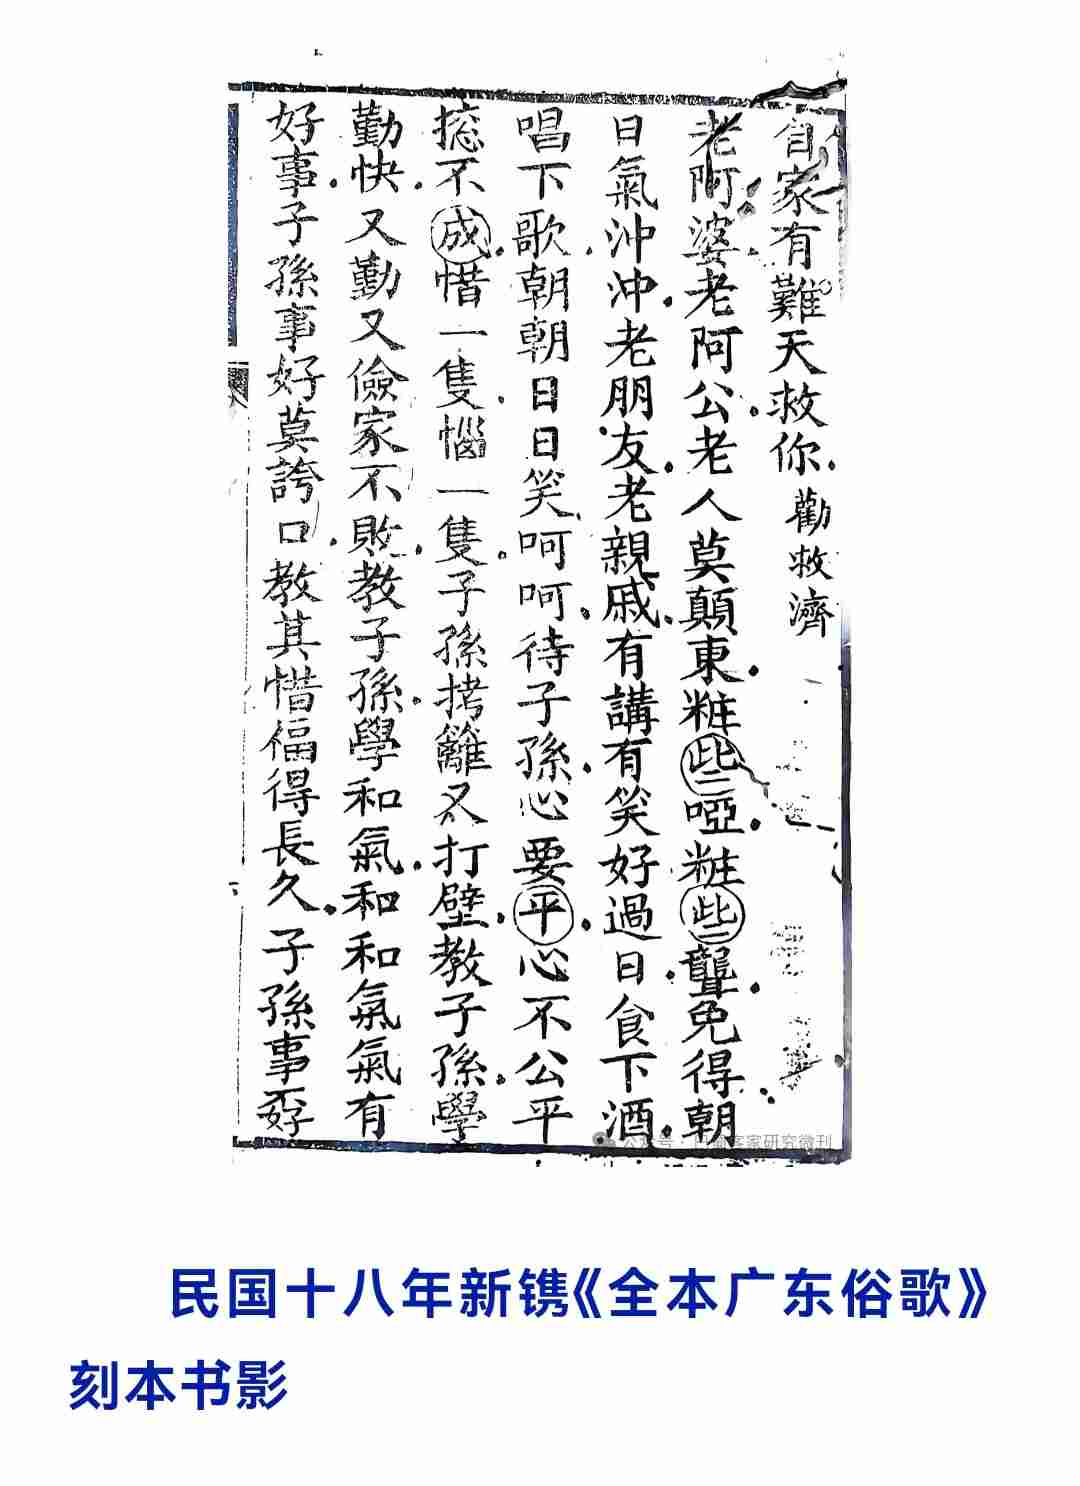 自家有難天救你.勸救濟
老阿婆.老阿公.老人莫顛東.粧些啞.粧些聾.免得朝
日氣沖沖.老朋友.老親戚.有講有笑好過日.食下酒.
唱下歌.朝朝日日笑呵呵.待子孫.心要平.心不公平
捴不成.惜一隻.惱一隻.子孫拷籬又打壁.教子孫.學
勤快.又勤又儉家不敗.教子孫.學和氣.和和氣氣有
好事.子孫事好莫誇口.教其惜福得長久.子孫事孬
民国十八年新镌《全本广东俗歌》
刻本书影